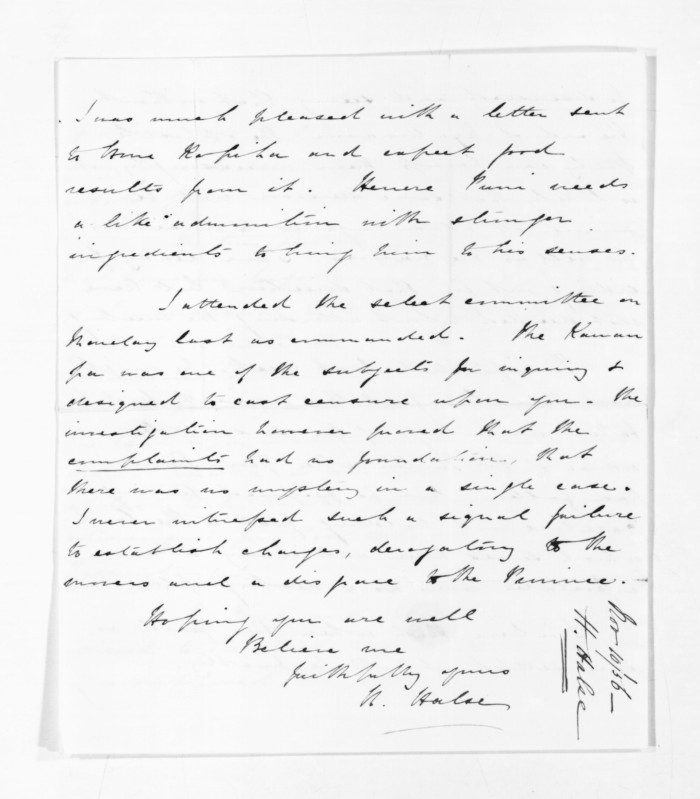 I was much pleased with a letter sent
to Wm Kapiha and expect good
results from it. Henere Puni needs
a like admonition with stronger
ingredients to bring him to his senses.
I attended the select committee on
Monday last as commanded. The Kawau
pa was one of the subjects for inquiry &
designed to cast censure upon you. The
investigation however proved that the
complaints had no foundation, that
there was no mystery in a single case.
I never witnessed such a signal failure
to establish charges, derogatory to the
movers and a disgrace to the Province.
Hoping you are well
Believe me
faithfully yours
H. Halse
Nov 10/56
H. Halse